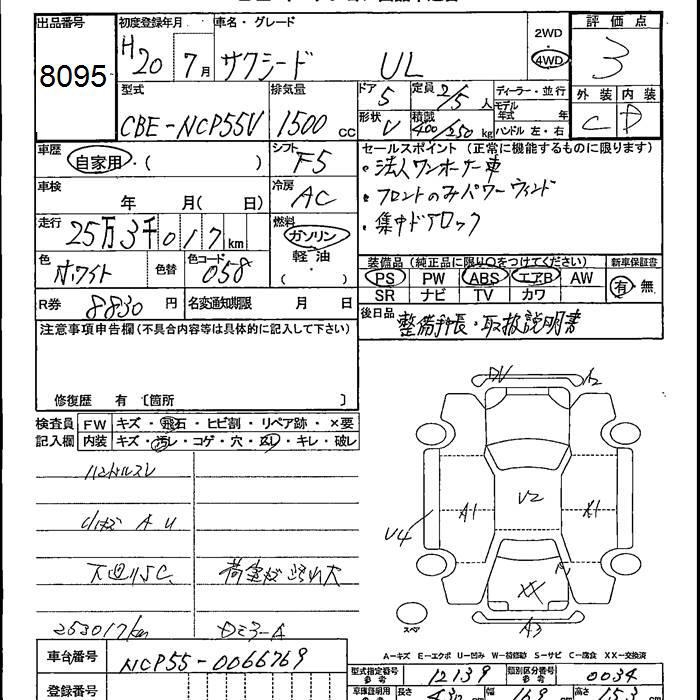 出品番号 8095
初度登録年月 H20 7月
車名・グレード サクシード UL
2WD 4WD
評価点 3
外装 C 内装 D
型式 CBE-NCP55V
排気量 1500 cc
ドア 5
定員 2/5 人
形状 V
積載 400/250 kg
ディーラー・並行
モデル年式 年
ハンドル 左・右
車歴 自家用・( )
シフト F5
車検 年 月( 日)
冷房 AC
走行 25万3千017km
燃料 ガソリン 軽油 ・( )
色 ホワイト 色替
色コード 058
R券 8830 円
名変通知期限 月 日
セールスポイント (正常に機能するものに限ります)
・法人ワンオーナー車
・フロントのみパワーウィンド
・集中ドアロック
装備品 (純正品に限り○をつけてください) 新車保証書
PS PW ABS エアB AW 有・無
SR ナビ TV カワ
後日品 整備手帳・取扱説明書
注意事項申告欄(不具合内容等は具体的に記入して下さい)
修復歴 有 〔箇所 〕
検査員 FW キズ・飛石・ヒビ割・リペア跡・×要
記入欄 内装 キズ・汚レ・コゲ・穴・スレ・キレ・破レ
ハンドルスレ
小キズ A U
下廻りS.C.
荷室キズ汚れ大
253017km
Dミラ-A
車台番号 NCP55-0066769
登録番号
A2
V2
A1
A1
U4
XX
A3
スペア
A-キズ E-エクボ U-凹み W-補修跡 S-サビ C-腐食 XX-交換済
型式指定番号 参考 12139
類別区分番号 参考 0034
車庫証明用 長さ 430 幅 169 高さ 153 cm